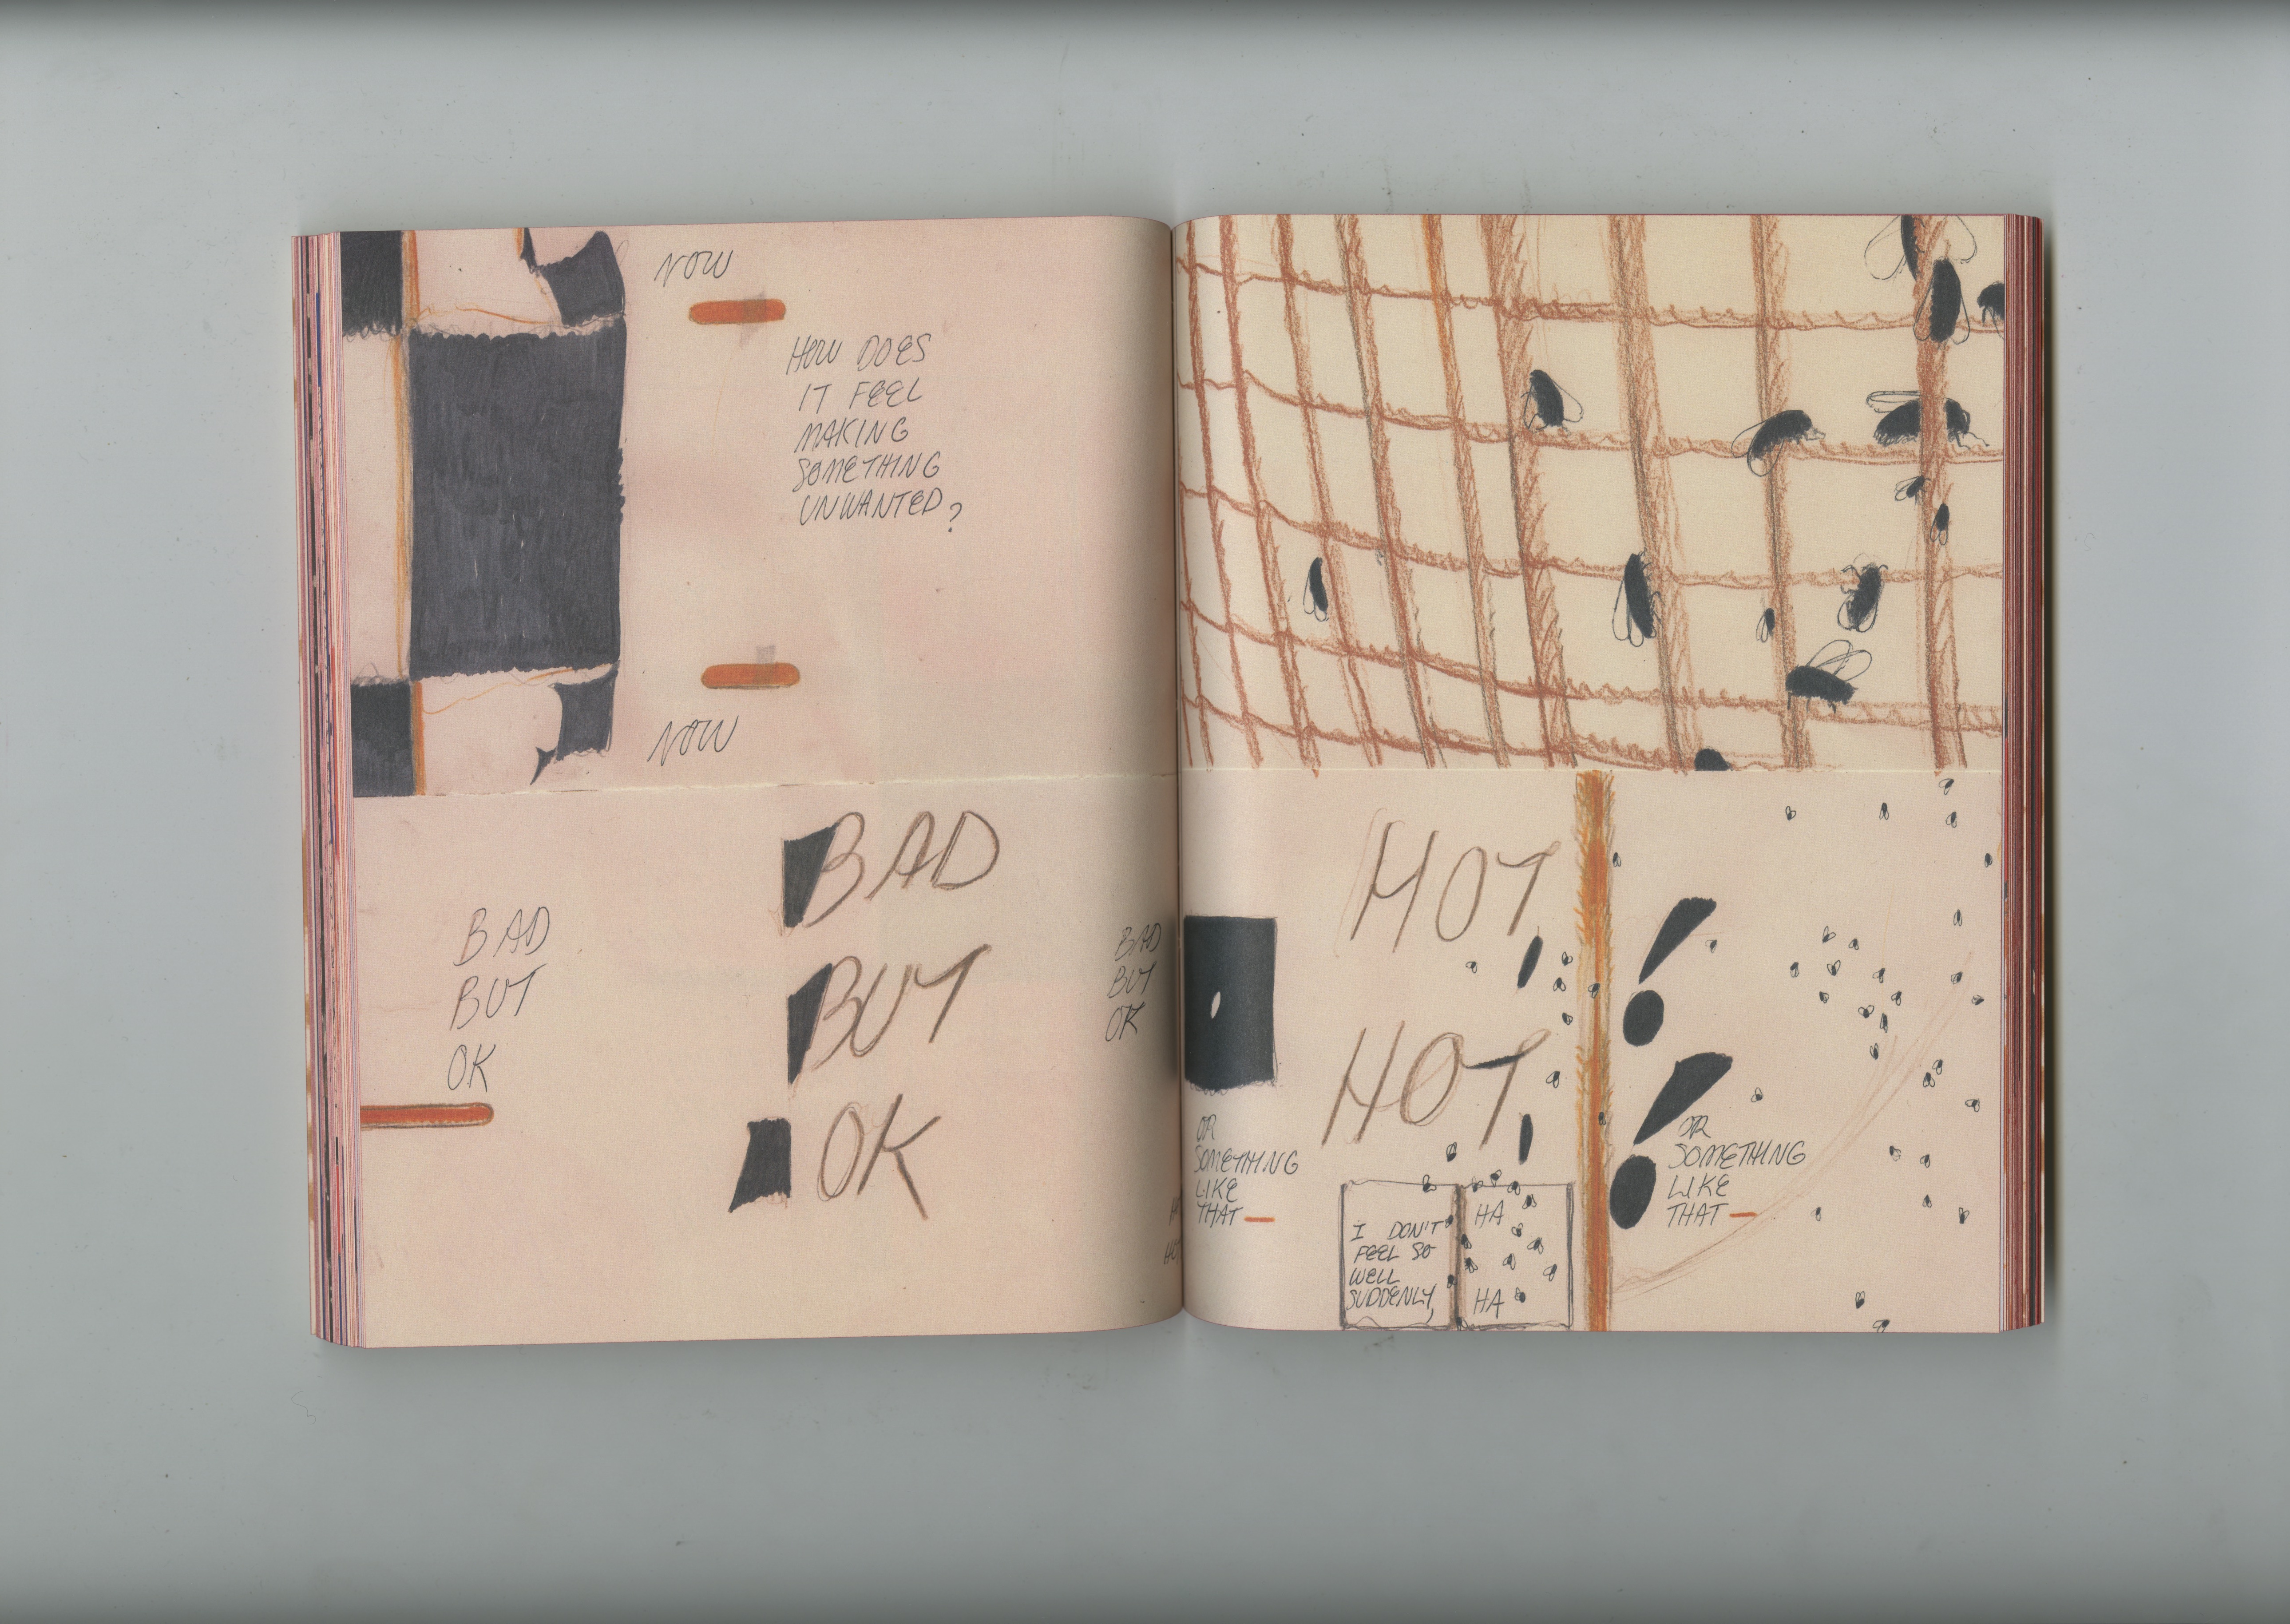 NOW
HOW DOES
IT FEEL
MAKING
SOMETHING
UNWANTED?
NOW
BAD
BUT
OK
BAD
BUT
OK
BAD
BUT
OK
HOT
HOT
OR
SOMETHING
LIKE
THAT
I DON'T
FEEL SO
WELL
SUDDENLY,
HA
HA
OR
SOMETHING
LIKE
THAT